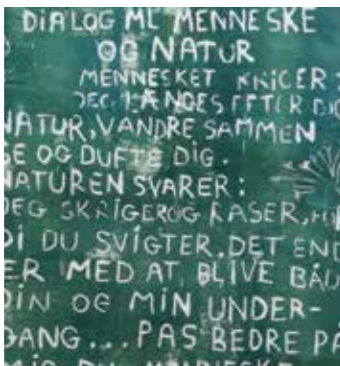 DiALOG ML MENNESKE
OG NATUR
MENNESKET KRiGER:
JEG LÆNGES EFTER DIG
NATUR, VANDRE SAMMEN
SE OG DUFTE DiG.
NATUREN SVARER:
JEG SKRIGER OG RASER, FOR
DI DU SVIGTER. DET END
ER MED AT BLIVE BÅD
DIN OG MIN UNDER-
GANG... PAS BEDRE PÅ
MIG DU MENNESKE